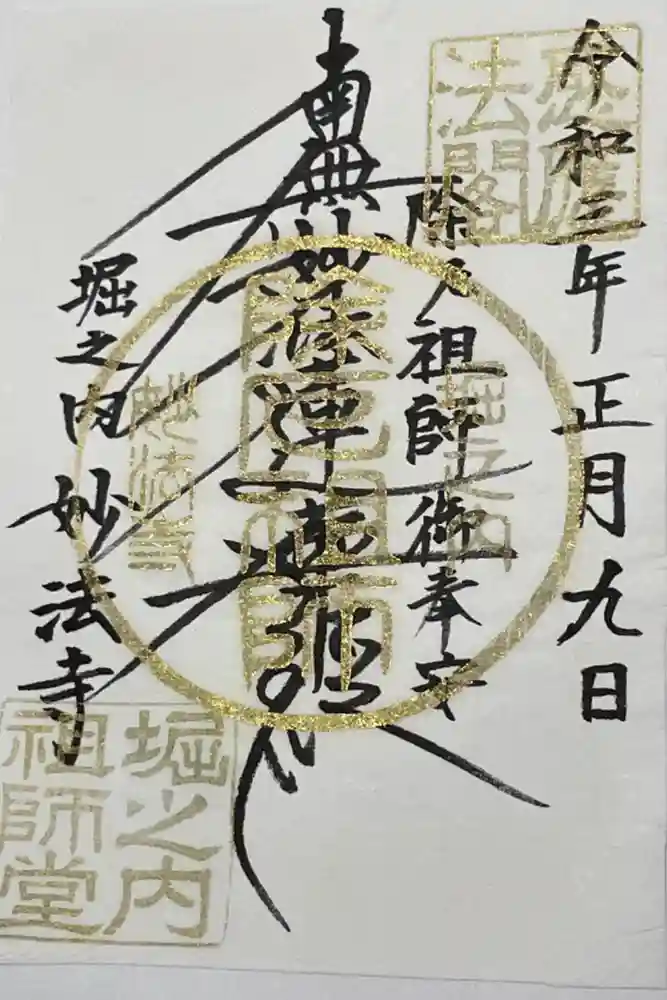 令和三年正月九日
法閣
除厄祖師御奉安
堀之内
南無妙法蓮華経
除厄祖師
妙法寺
堀之内妙法寺
堀之内
祖師堂